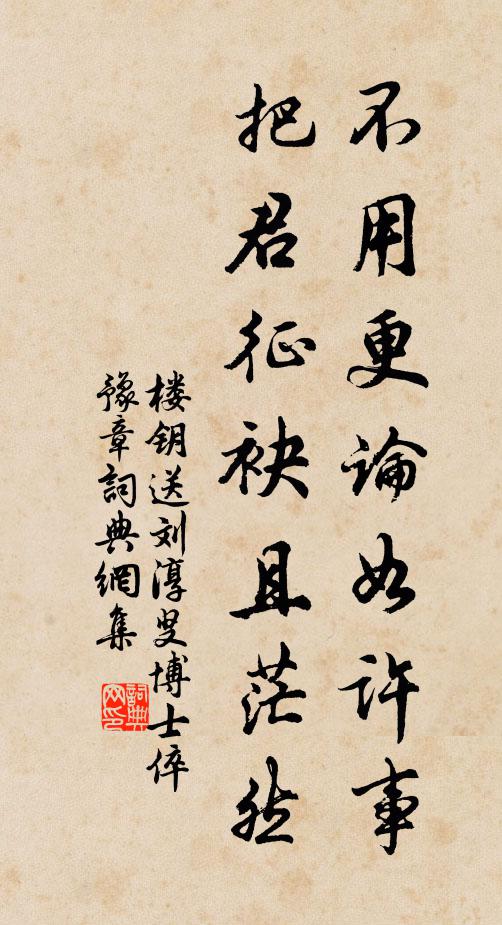 不用更論如許事
把君征袂且茫然
楼钥送刘淳叟博士倅
豫章詞典網集
詞典
网印